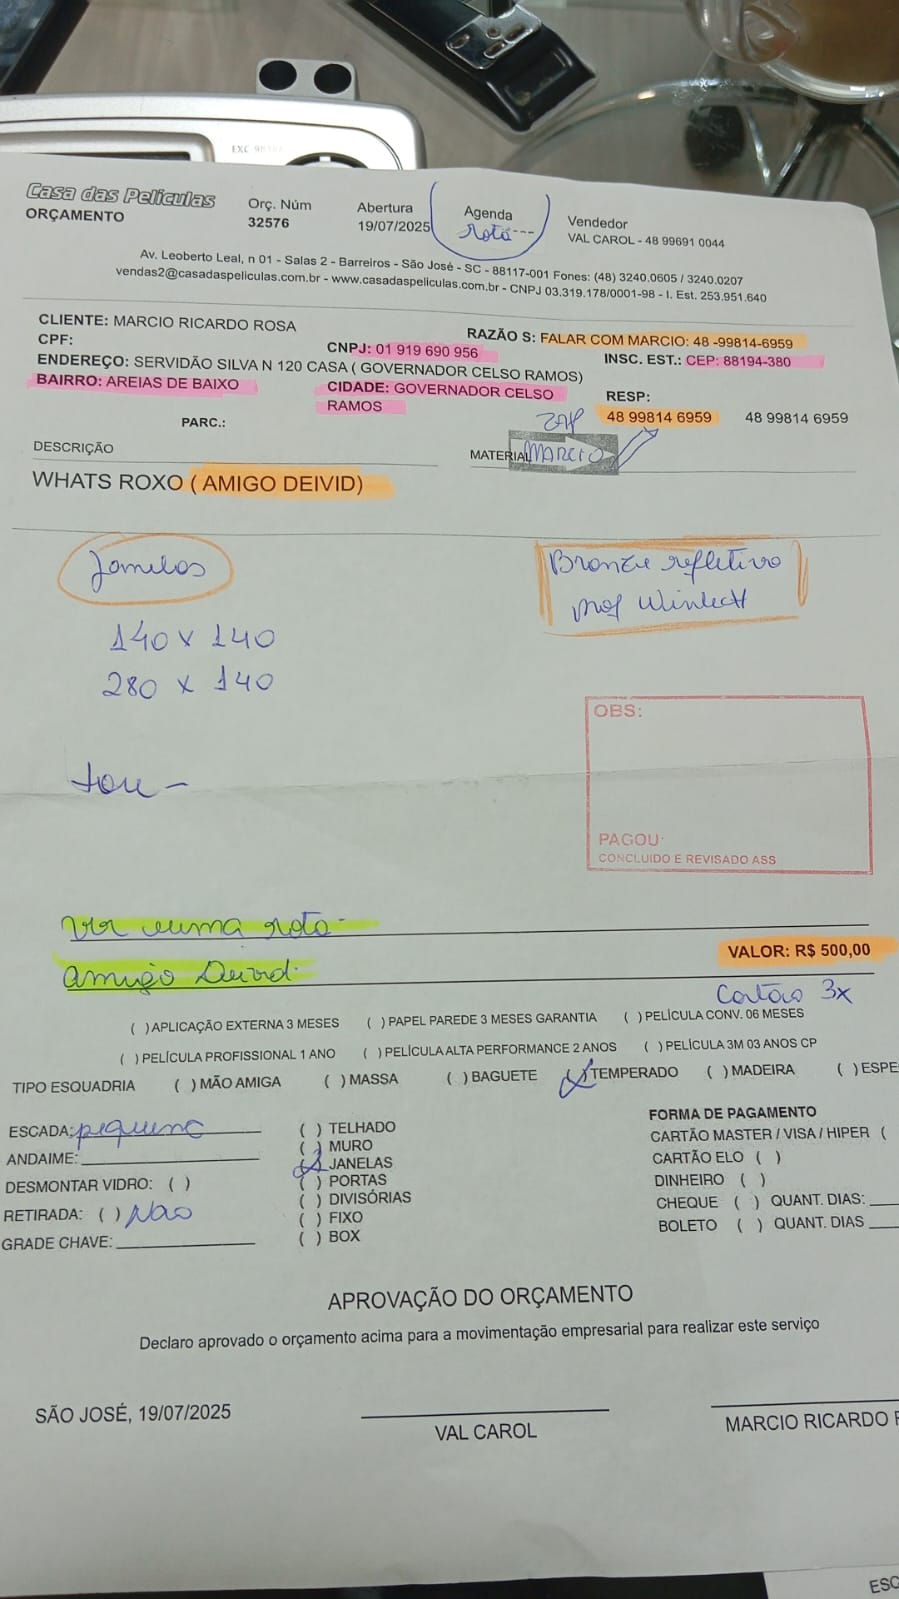 EXC 981
Casa das Películas
ORÇAMENTO
Orç. Núm
32576
Abertura
19/07/2025
Agenda
rota
Vendedor
VAL CAROL - 48 99691 0044
Av. Leoberto Leal, n 01 - Salas 2 - Barreiros - São José - SC - 88117-001 Fones: (48) 3240.0605 / 3240.0207
vendas2@casadaspeliculas.com.br - www.casadaspeliculas.com.br - CNPJ 03.319.178/0001-98 - I. Est. 253.951.640
CLIENTE: MARCIO RICARDO ROSA
RAZÃO S: FALAR COM MARCIO: 48 -99814-6959
CPF:
CNPJ: 01 919 690 956
INSC. EST.: CEP: 88194-380
ENDEREÇO: SERVIDÃO SILVA N 120 CASA ( GOVERNADOR CELSO RAMOS)
BAIRRO: AREIAS DE BAIXO
CIDADE: GOVERNADOR CELSO
RAMOS
RESP:
48 99814 6959
48 99814 6959
PARC.:
ZAP
DESCRIÇÃO
MATERIAL
MARCIO
WHATS ROXO ( AMIGO DEIVID)
Janelas
Bronze refletivo
prof Wintech
140 x 140
280 x 140
OBS:
PAGOU:
CONCLUIDO E REVISADO ASS
Ver numa rota
amigo Deivid.
VALOR: R$ 500,00
Cartão 3x
( ) APLICAÇÃO EXTERNA 3 MESES ( ) PAPEL PAREDE 3 MESES GARANTIA ( ) PELÍCULA CONV. 06 MESES
( ) PELÍCULA PROFISSIONAL 1 ANO ( ) PELÍCULA ALTA PERFORMANCE 2 ANOS ( ) PELÍCULA 3M 03 ANOS CP
TIPO ESQUADRIA ( ) MÃO AMIGA ( ) MASSA ( ) BAGUETE (X) TEMPERADO ( ) MADEIRA ( ) ESPE
ESCADA: pequena
ANDAIME:
DESMONTAR VIDRO: ( )
RETIRADA: ( ) Não
GRADE CHAVE:
( ) TELHADO
( ) MURO
(X) JANELAS
( ) PORTAS
( ) DIVISÓRIAS
( ) FIXO
( ) BOX
FORMA DE PAGAMENTO
CARTÃO MASTER / VISA / HIPER (
CARTÃO ELO ( )
DINHEIRO ( )
CHEQUE ( ) QUANT. DIAS:
BOLETO ( ) QUANT. DIAS
APROVAÇÃO DO ORÇAMENTO
Declaro aprovado o orçamento acima para a movimentação empresarial para realizar este serviço
SÃO JOSÉ, 19/07/2025
VAL CAROL
MARCIO RICARDO
ESC